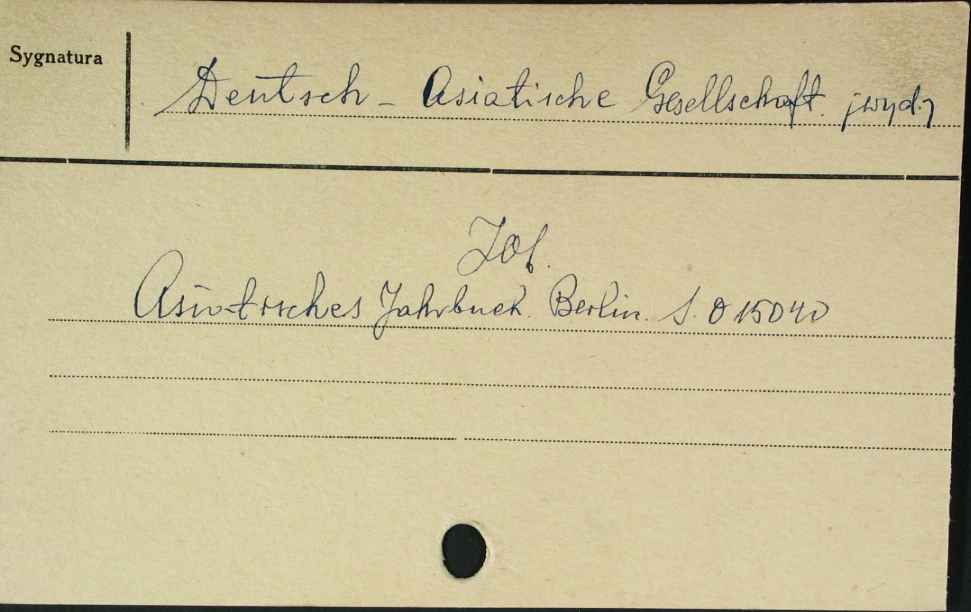 Sygnatura
Deutsch - Asiatische Gesellschaft. [wyd.]
Zob.
Asiatisches Jahrbuch. Berlin. S. O 15040